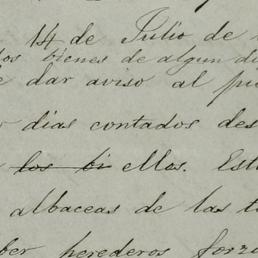 14 de Julio de
los bienes de algun di
de dar aviso al pu
dias contados des
los bi ellos. Est
albaceas de las t
ber herederos forzo